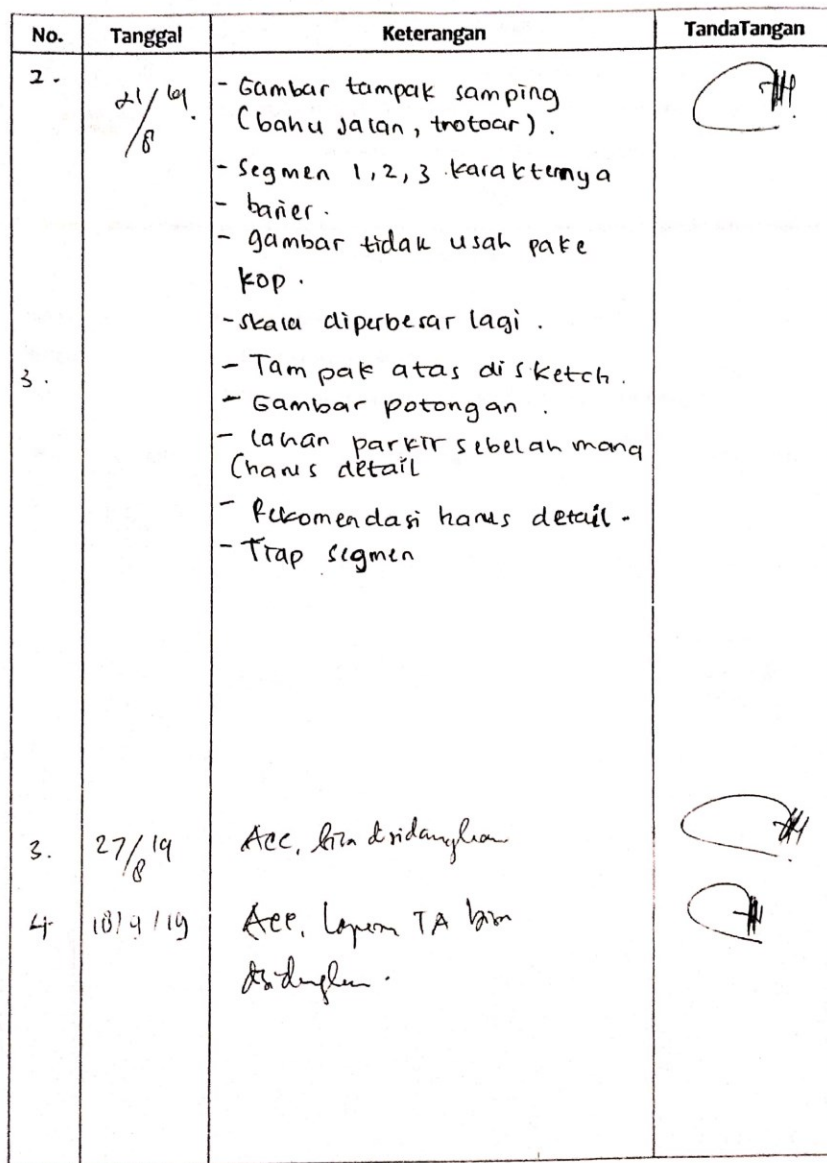 No. Tanggal Keterangan TandaTangan
2. 21/8 19. - Gambar tampak samping
(bahu jalan, trotoar).
- Segmen 1, 2, 3 karakternya
- barier.
- gambar tidak usah pake
kop.
- skala diperbesar lagi.
3. - Tampak atas di sketch.
- Gambar potongan.
- lahan parkir sebelah mana
(harus detail
- Rekomendasi harus detail.
- Tiap segmen
3. 27/8 19 Acc, bisa disidangkan
4. 18/9/19 Acc, Laporan TA bisa
disidangkan.